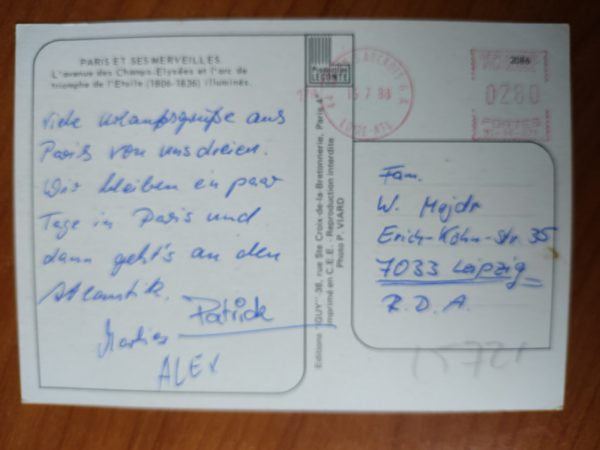 PARIS ET SES MERVEILLES
L'avenue des Champs-Elysées et l'arc de
triomphe de l'Etoile (1806-1836) illuminés.
Viele Urlaubsgrüße aus
Paris von uns dreien.
Wir bleiben ein paar
Tage in Paris und
dann geht's an den
Atlantik.
Patrick
ALEX
Production
LECONTE
Editions "GUY" 38, rue Ste Croix de-la-Bretonnerie, Paris 4e
Imprimé en C.E.E. - Reproduction interdite
Photo P. VIARD
7 88
2086
0280
POSTES
Fam.
W. Majdr
Erich-Köhn-Str. 35
7033 Leipzig
R.D.A.
15721